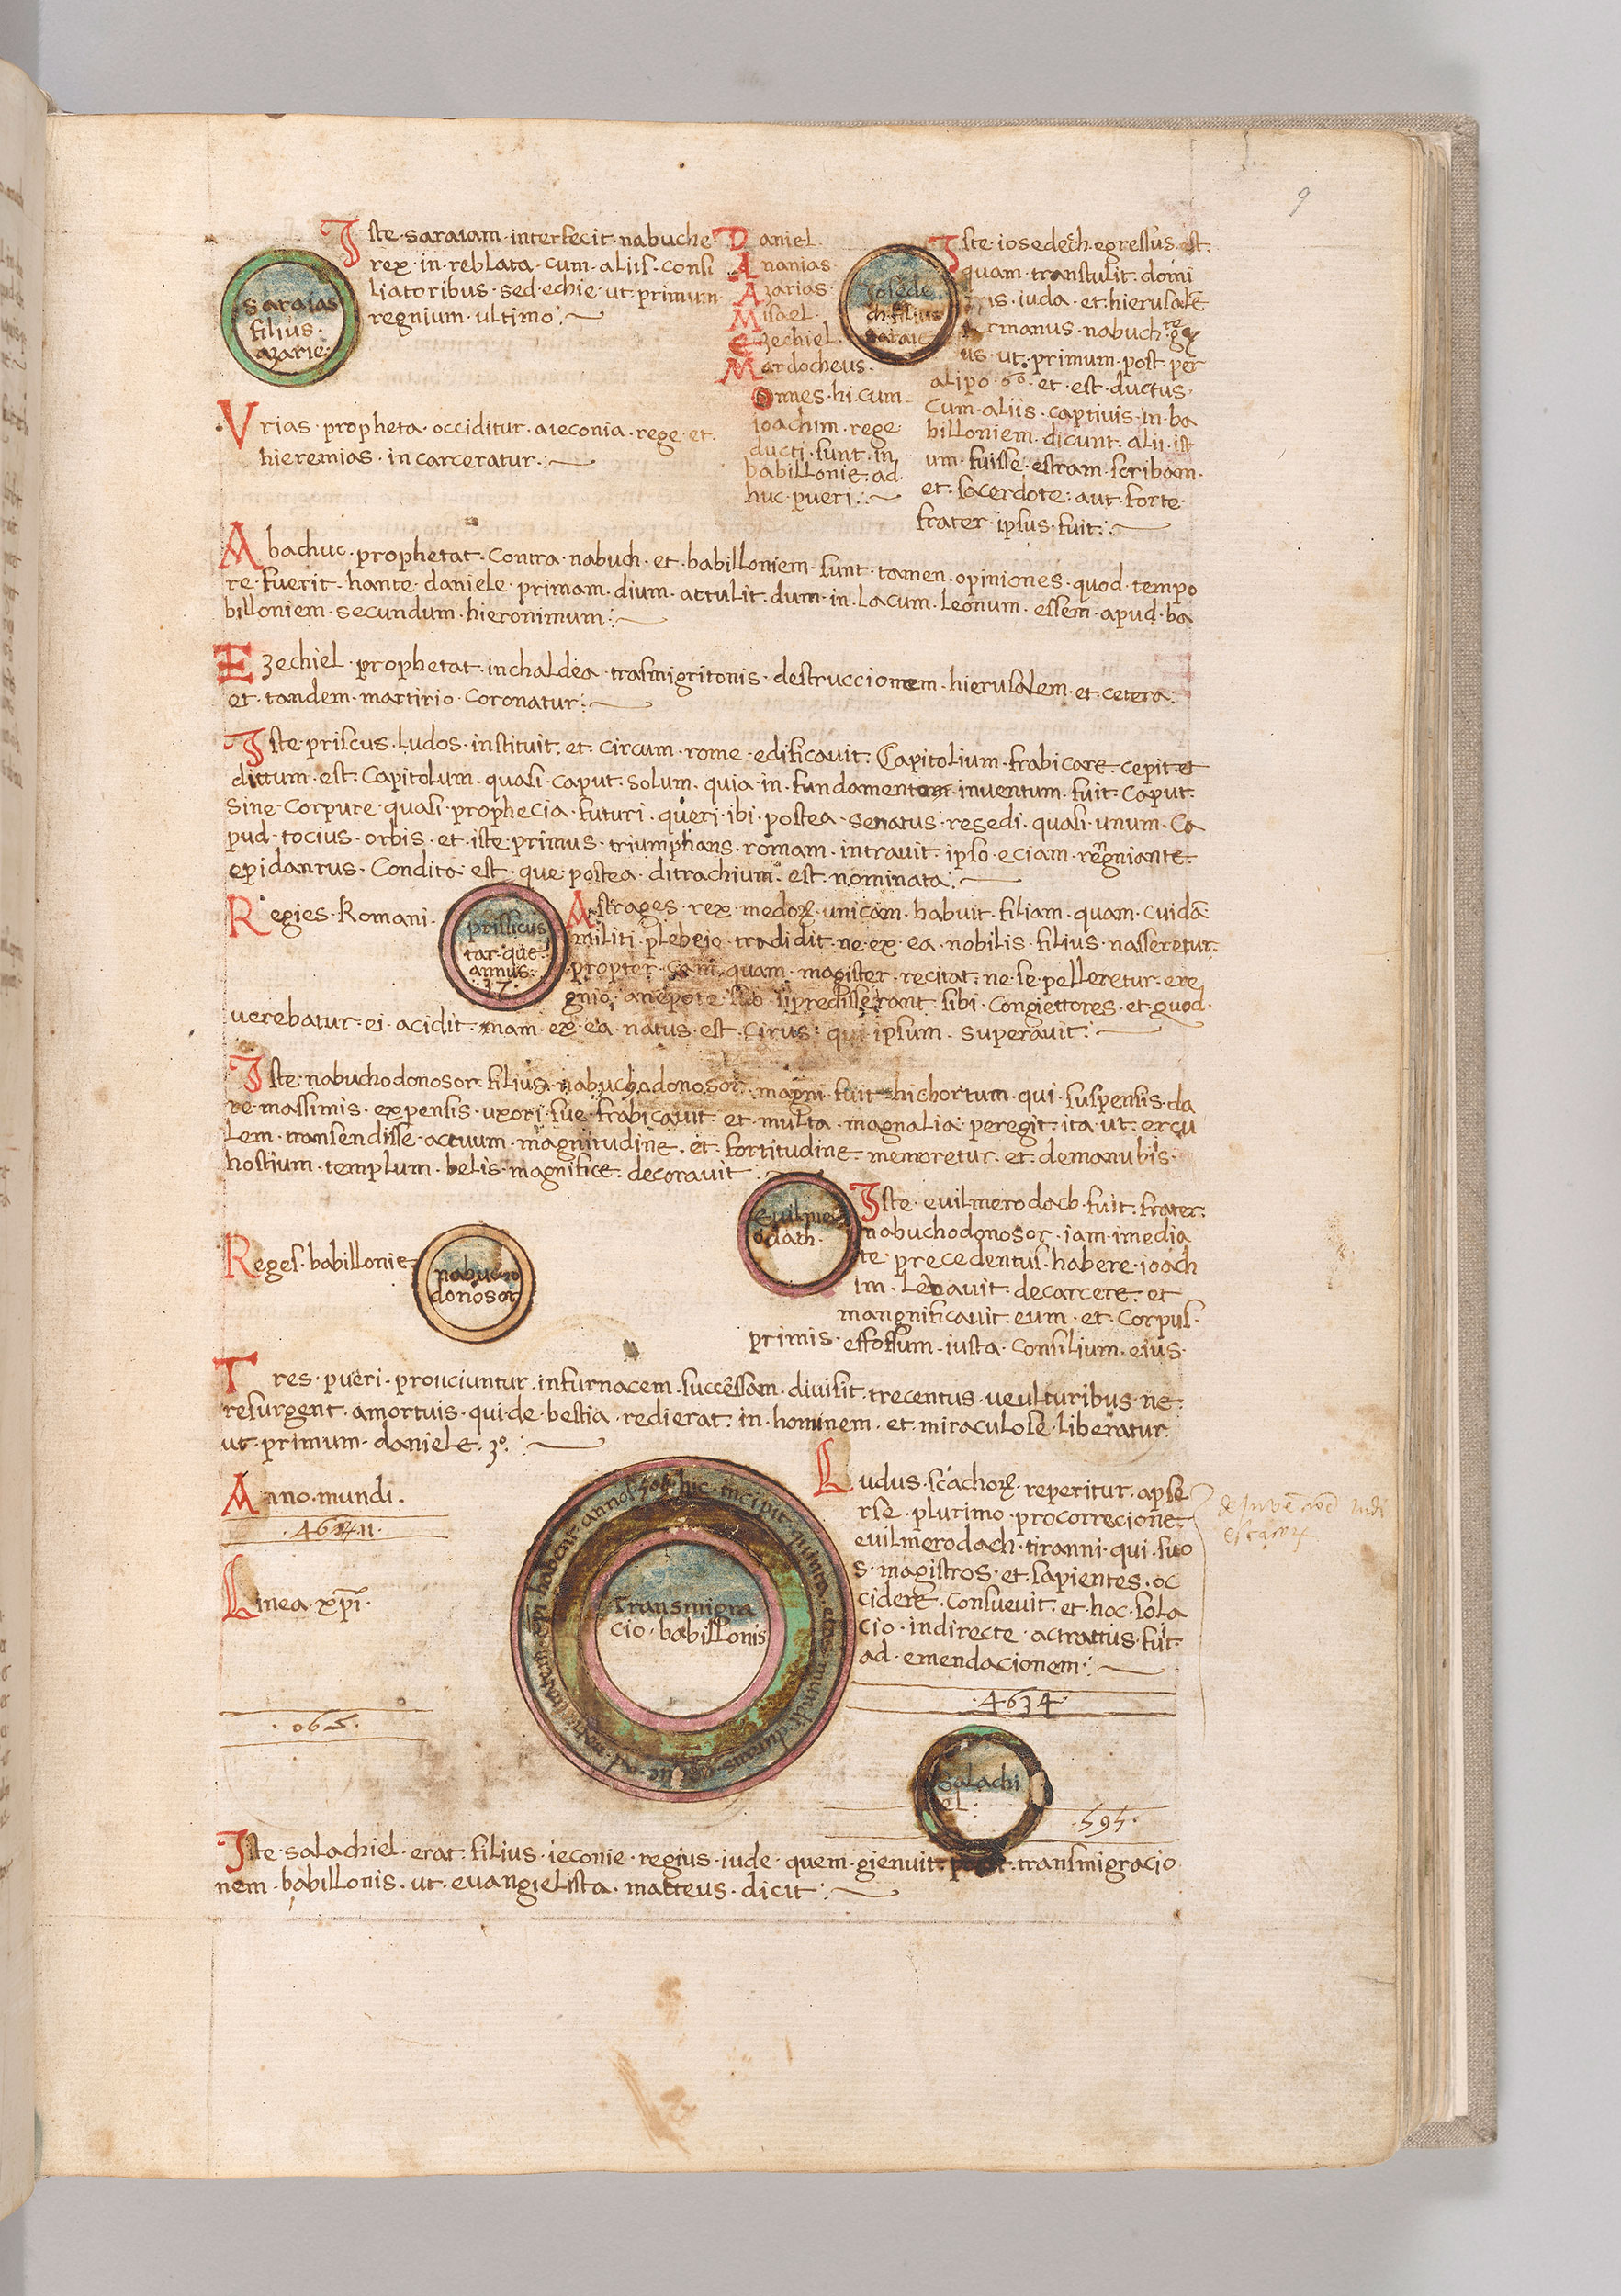 9
Iste·saraiam·interfecit·nabuche
rex·in·reblata·cum·aliis·consi
liatoribus·sed·echie·ut·primum·
regnium·ultimo:~
saraias
filius:
azarie:
Daniel.
Ananias
Azarias·
Misael.
Ezechiel.
Mardocheus.
Omnes·hi·cum
ioachim·rege
ducti·sunt·in
babillonie·ad·
huc·pueri:~
Iosede
ch·filius
saraie
Iste·iosedech·egressus·est.
quam·transtulit·domi
iuda·et·hierusalē
Armanus·nabuch
us·ut·primum·post·per
alipo·6º·et·est·ductus·
cum·aliis·captivis·in·ba
billoniem·dicunt·alii·ist
um·fuisse·estram·scribam·
et·sacerdote:aut·forte·
frater·ipsus·fuit:~
Vrias·propheta·occiditur·aieconia·rege·et.
hieremias·in carceratur:~
Abachuc·prophetat·contra·nabuch·et·babilloniem·sunt·tamen·opiniones·quod·tempo
re·fuerit·hante·daniele·primam·dium·attulit·dum·in·lacum·leonum·essem·apud·ba
billoniem·secundum·hieronimum:~
Ezechiel·prophetat·inchaldea·trasmigritonis·destruccionem·hierusalem·et·cetera:
et·tandem·martirio·coronatur:~
Iste·priscus·ludos·instituit·et·circum·rome·edificavit:Capitolium·frabicare·cepit·et
dittum·est:Capitolum·quasi·caput·solum·quia·in·fundamentom·inventum·fuit·caput·
sine·corpure·quasi·prophecia·futuri·queri·ibi·postea·senatus·resedi·quasi·unum·ca
pud·tocius·orbis·et·iste·primus·triumphans·romam·intravit·ipso·eciam·regniante·
epidanrus·condita·est·que·postea·ditrachium·est·nominata:~
Regies·Romani·
prissicus
tar·que
annus:
·37·
Astrages·rex·medoꝝ·unicam·habuit·filiam·quam·cuidā
militi·plebeio·tradidit·ne·ex·ea·nobilis·filius·nasseretur·
propter·quam·magister·recitat·ne·se·pelleretur·ere
gnio·anepote·sipredisserant·sibi·congiettores·et·quod·
verebatur·ei·acidit·nam·ex·ea·natus·est·cirus:qui·ipsum·superavit:~
Iste·nabuchodonosor·filius·nabuchadonosor·magni·fuit·hic hortum·qui·suspensis·da
re·massimis·expensis·uxori·sue·frabicavit·et·multa·magnalia·peregit·ita·ut·ercu
lem·transendisse·actuum·magnitudine·et·fortitudine·memoretur·et·demanubis·
hostium·templum·belis·magnifice·decoravit:~
Reges·babillonie·
nabucho
donosor
Evilme
odach·
Iste·evilmerodach·fuit·frater:
nabuchodonosor·iam·imedia
te·precedentus·habere·ioach
im·levavit·decarcere·et
mangnificavit·eum·et·corpus·
primis·effossum·iusta·consilium·eius·
Tres·pueri·proiiciuntur·infurnacem·successam·divisit·trecentus·veulturibus·ne·
resurgent·amortuis·qui·de·bestia·redierat·in·hominem·et·miraculose·liberatur
ut·primum·daniele·3º:~
Anno·mundi.
Linea·xp̄i·
·065·
hic·incipit·quinta·etas·mundi·durans·
Transmigra
cio·babillonis
Ludus·scachoꝝ·reperitur·apse
rse·plurimo·procorrecione·
evilmerodach·tiranni·qui·suo
s·magistros·et·sapientes·oc
cidere·consuevit·et·hoc·sola
cio·indirecte·actrattus·fuit·
ad·emendacionem:~
·4634·
Salachi
el:
·595·
Iste·salachiel·erat·filius·ieconie·regius·iude·quem·gienuit·transmigracio
nem·babillonis·ut·evangielista·matteus·dicit:~